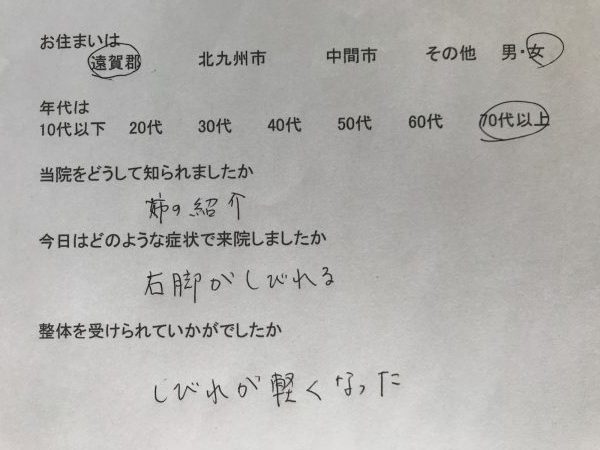 お住まいは
遠賀郡 北九州市 中間市 その他 男・女
年代は
10代以下 20代 30代 40代 50代 60代 70代以上
当院をどうして知られましたか
姉の紹介
今日はどのような症状で来院しましたか
右脚がしびれる
整体を受けられていかがでしたか
しびれが軽くなった